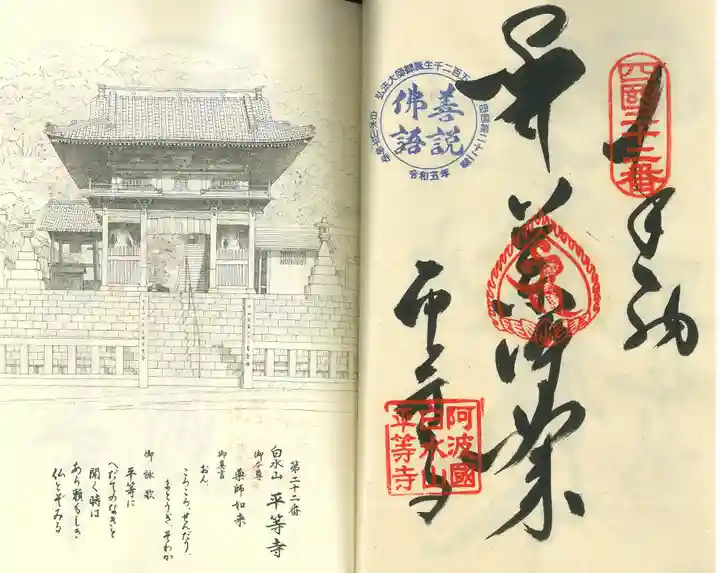 四国二十二番
奉納
薬師如来
平等寺
阿波國
白水山
平等寺
弘法大師御誕生千二百五
四国第二十二番
善説
佛語
令和五年
第二十二番
白水山 平等寺
御本尊
薬師如来
御真言
おん、
ころころ、せんだり、
まとうぎ、そわか
御詠歌
平等に
へだてのなきと
聞く時は
あら頼もしき
仏とぞみる